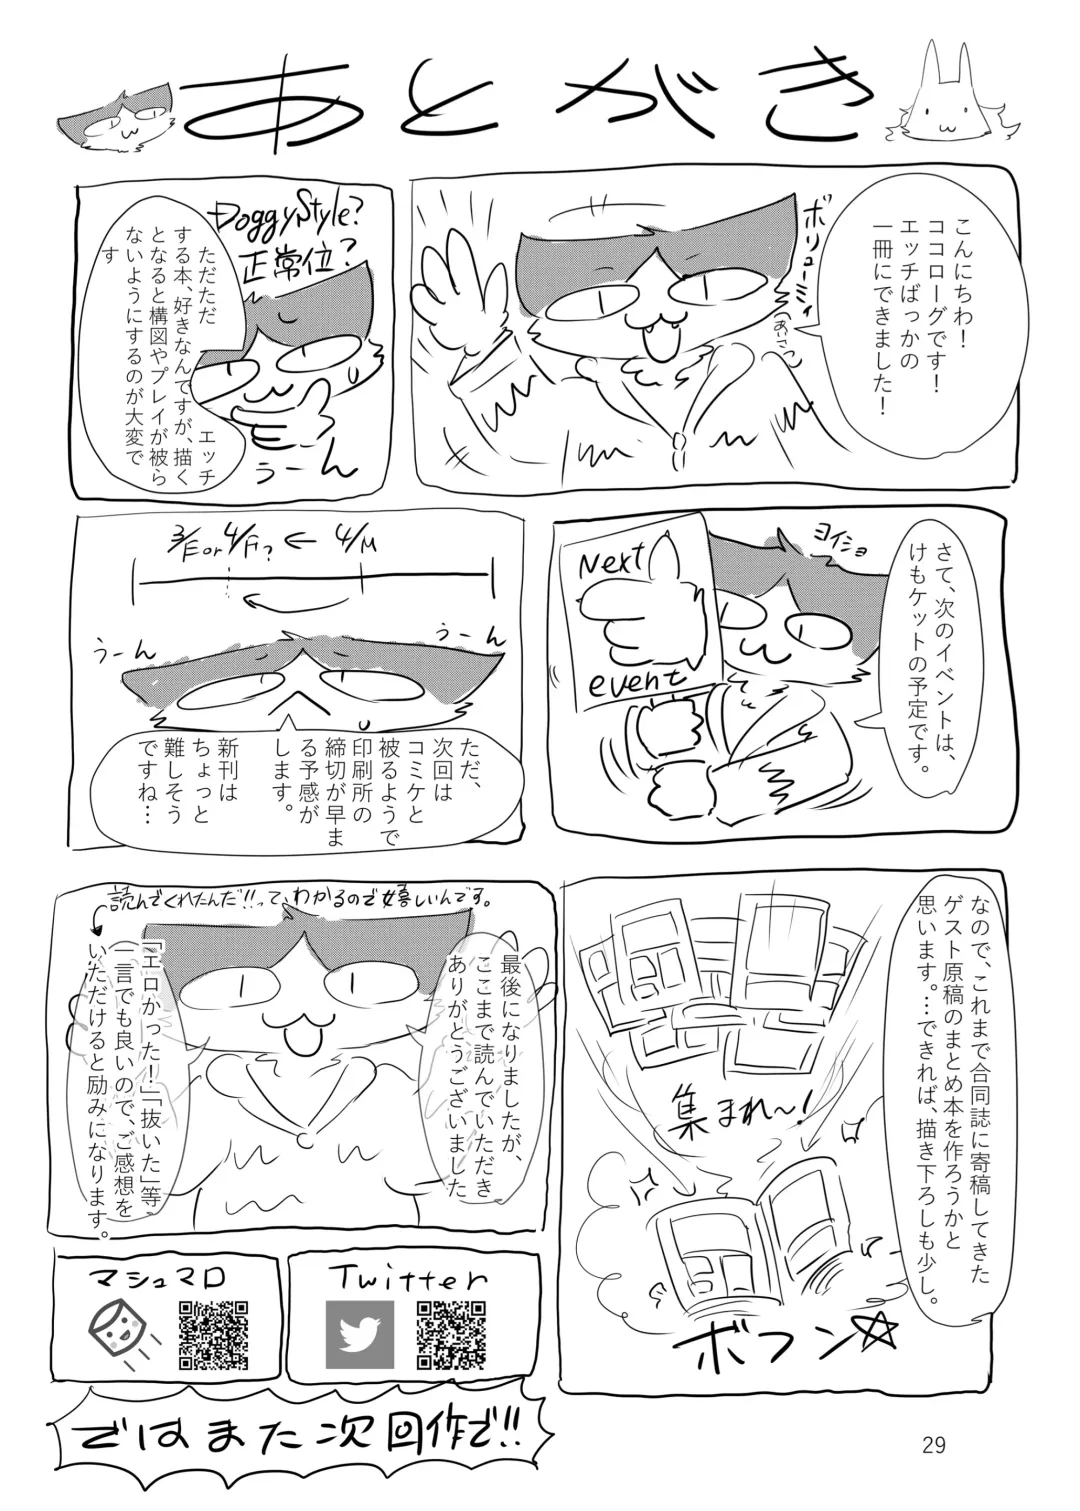 あとがき
こんにちわ！
ココローグです！
エッチばっかの
一冊にできました！
ボリューミィ
DoggyStyle?
正常位?
ただただ
エッチ
する本、好きなんですが、描く
となると構図やプレイが被ら
ないようにするのが大変で
す
うーん
さて、次のイベントは、
けもケットの予定です。
ヨイショ
Next
event
3/E or 4/F? ← 4/M
うーん
うーん
ただ、
次回は
コミケと
被るようで
印刷所の
締切が早ま
る予感が
します。
新刊は
ちょっと
難しそう
ですね…
なので、これまで合同誌に寄稿してきた
ゲスト原稿のまとめ本を作ろうかと
思います。…できれば、描き下ろしも少し。
集まれ～！
ボフン☆
読んでくれたんだ!!って、わかるので嬉しいんです。
最後になりましたが、
ここまで読んでいただき
ありがとうございました
「エロかった！」「抜いた」等
一言でも良いので、ご感想を
いただけると励みになります。
マシュマロ
Twitter
ではまた次回作で!!
29